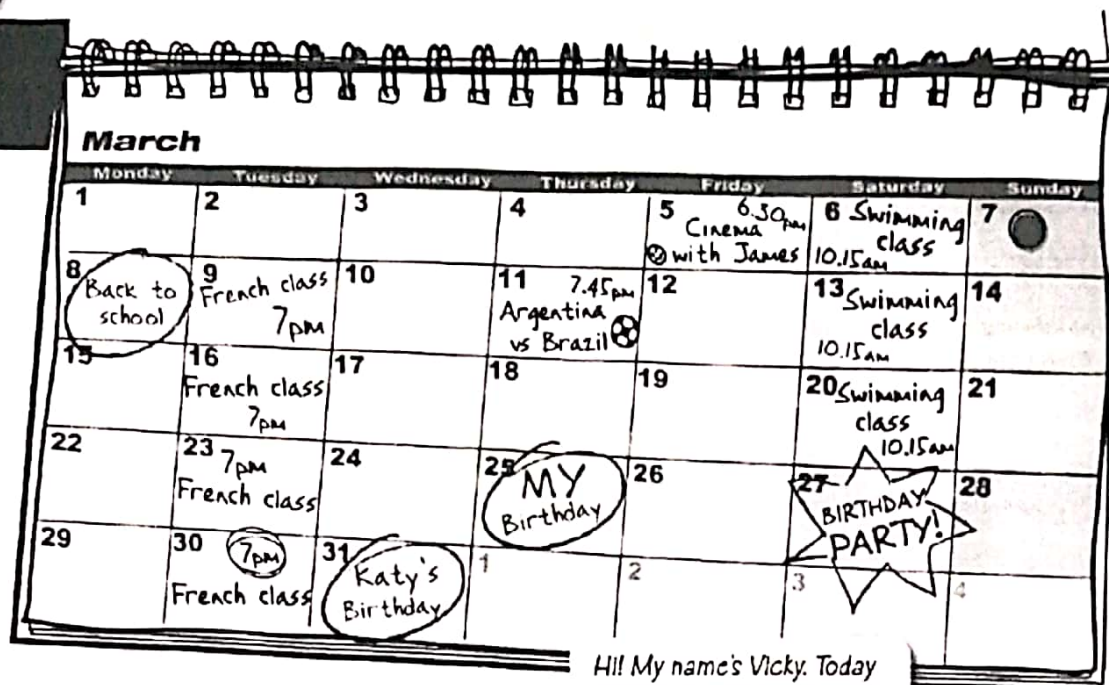 March
Monday Tuesday Wednesday Thursday Friday Saturday Sunday
1
2
3
4
5 6.30pm
Cinema
with James
6 Swimming
class
10.15am
7
8
Back to
school
9
French class
7pm
10
11 7.45pm
Argentina
vs Brazil
12
13 Swimming
class
10.15am
14
15
16
French class
7pm
17
18
19
20 Swimming
class
10.15am
21
22
23 7pm
French class
24
25
MY
Birthday
26
27
BIRTHDAY
PARTY!
28
29
30 7pm
French class
31
Katy's
Birthday
1
2
3
4
Hi! My name's Vicky. Today